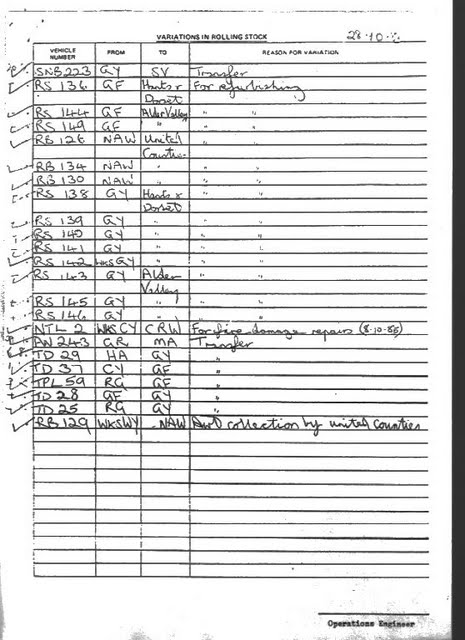 VARIATIONS IN ROLLING STOCK 28-10-
VEHICLE NUMBER FROM TO REASON FOR VARIATION
SNB 223 GY SV Transfer
RS 136 GF Hants & For refurbishing
Dorset
RS 144 GF Alder Valley " "
RS 149 GF " " "
RB 126 NAW United " "
Counties
RB 134 NAW " " "
RB 130 NAW " " "
RS 138 GY Hants & " "
Dorset
RS 139 GY " " "
RS 140 GY " " "
RS 141 GY " " "
RS 142 WKSGY " " "
RS 143 GY Alder " "
Valley
RS 145 GY " " "
RS 146 GY " " "
NTL 2 WKSCY CRW For fire damage repairs (8-10-86)
AN 243 GR MA Transfer
TD 29 HA GY "
TD 37 CY GF "
TPL 59 RG GF "
TD 28 GF GY "
TD 25 RG GY "
RB 129 WKSWY NAW Awt collection by united counties
Operations Engineer